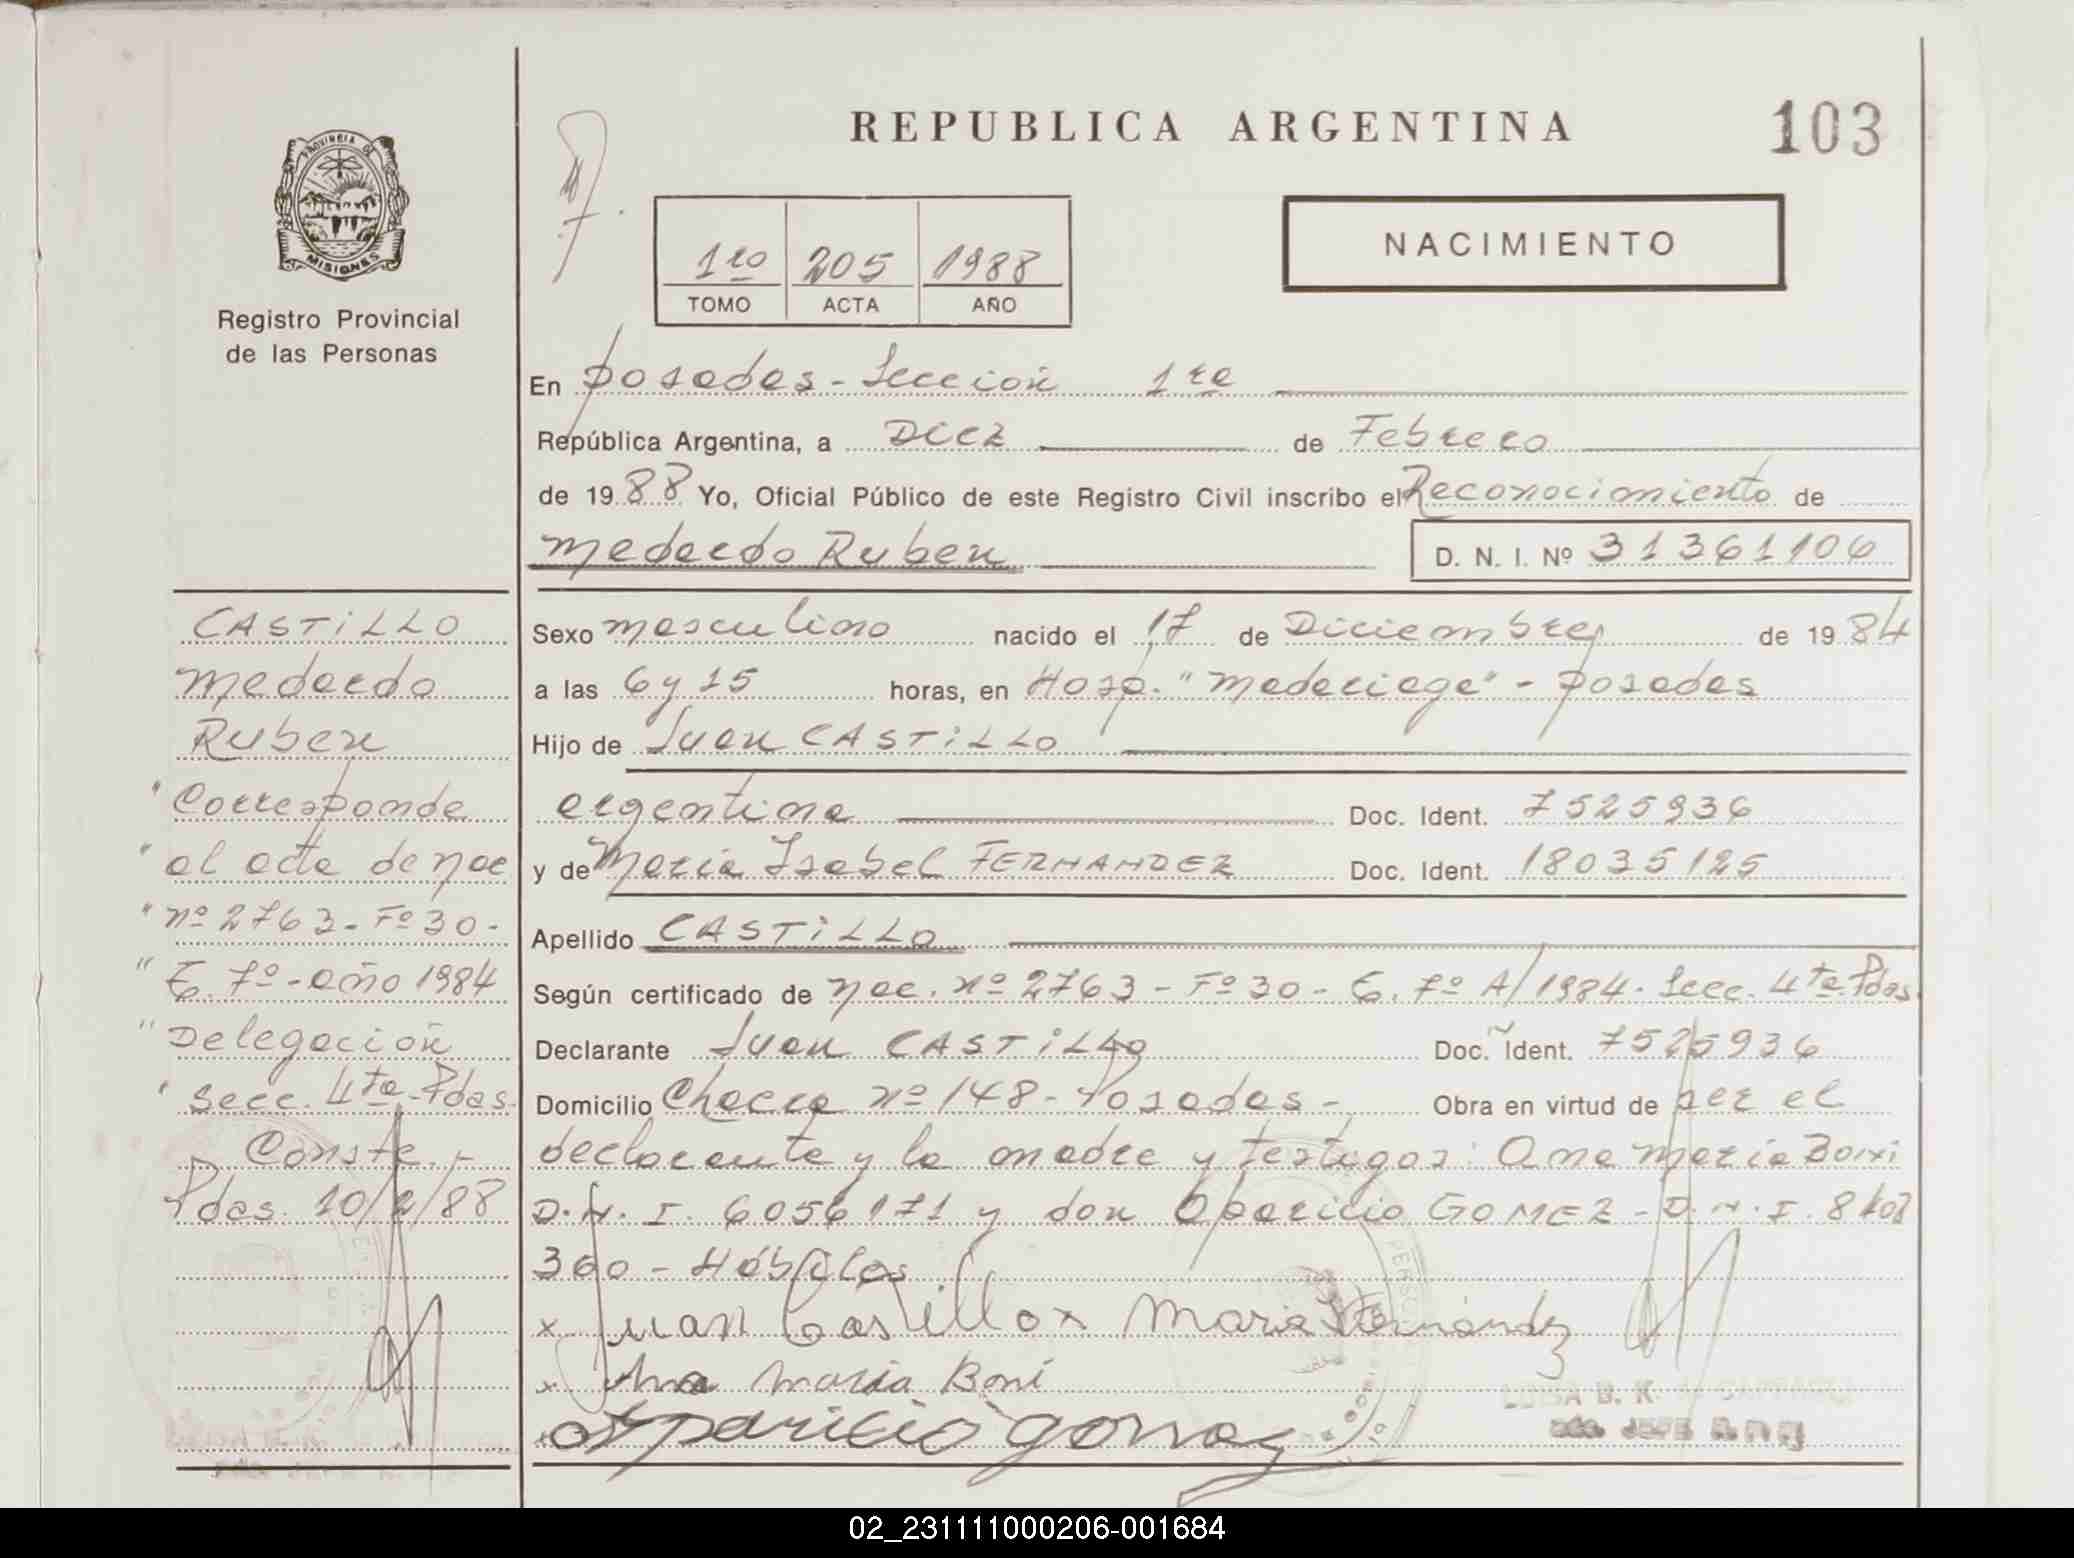 REPUBLICA ARGENTINA
103
PROVINCIA DE
MISIONES
Registro Provincial
de las Personas
1ro 205 1988
TOMO ACTA AÑO
NACIMIENTO
En Posadas - Sección 1ra
República Argentina, a Diez de Febrero
de 1988 Yo, Oficial Público de este Registro Civil inscribo el Reconocimiento de
Medardo Ruben D. N. I. Nº 31361106
Sexo masculino nacido el 17 de Diciembre de 1984
a las 6 y 15 horas, en Hosp. "Madariaga" - Posadas
Hijo de Juan CASTiLLO
argentina Doc. Ident. 7525936
y de Maria Isabel FERNANDEZ Doc. Ident. 18035125
Apellido CASTiLLO
Según certificado de Nac. nº 2763 - Fº 30 - T. 7º A/1984. Secc. 4ta. Pdas
Declarante Juan CASTiLLO Doc. Ident. 7525936
Domicilio Chacra nº 148 - Posadas - Obra en virtud de ser el
declarante y la madre y testigos: Ana María Boni
D.N.I. 6056171 y don Aparicio GOMEZ - D.N.I. 8
360 - Hábiles
x Juan Castillo x Maria Fernández
x Ana Maria Boni
Aparicio gomez
CASTiLLO
Medardo
Ruben
"Corresponde
"al acta de Nac
"nº 2763 - Fº 30 -
"T. 7º - año 1984
"Delegación
"Secc. 4ta - Pdas.
Conste. -
Pdas. 10/2/88
02_231111000206-001684